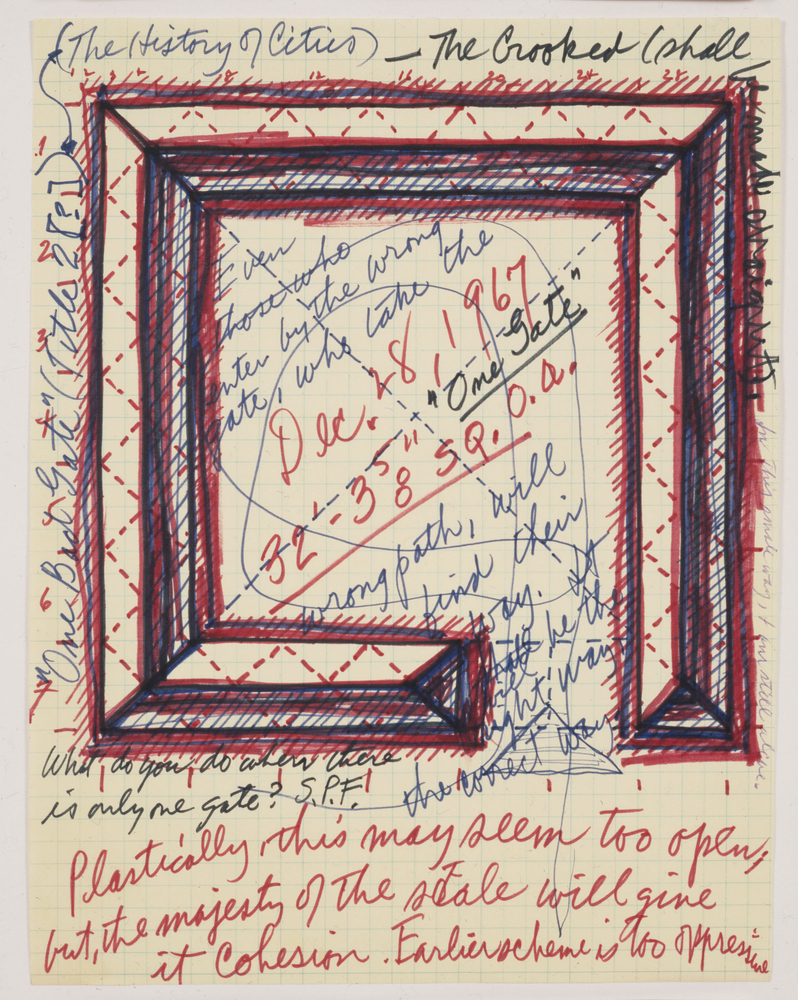 (The History of Cities) — The Crooked (shall
"One Bad Gate" (Title 28?)
Even
those who
enter by the wrong
gate, who take the
Dec. 28, 1967
"One Gate"
32' - 3 5/8" SQ. O.A.
wrong path, will
find their
way. It
will be the
right way
the correct way
What, do you, do when there
is only one gate? S.P.F.
Plastically, this may seem too open,
but, the majesty of the scale will give
it Cohesion. Earlier scheme is too oppressive